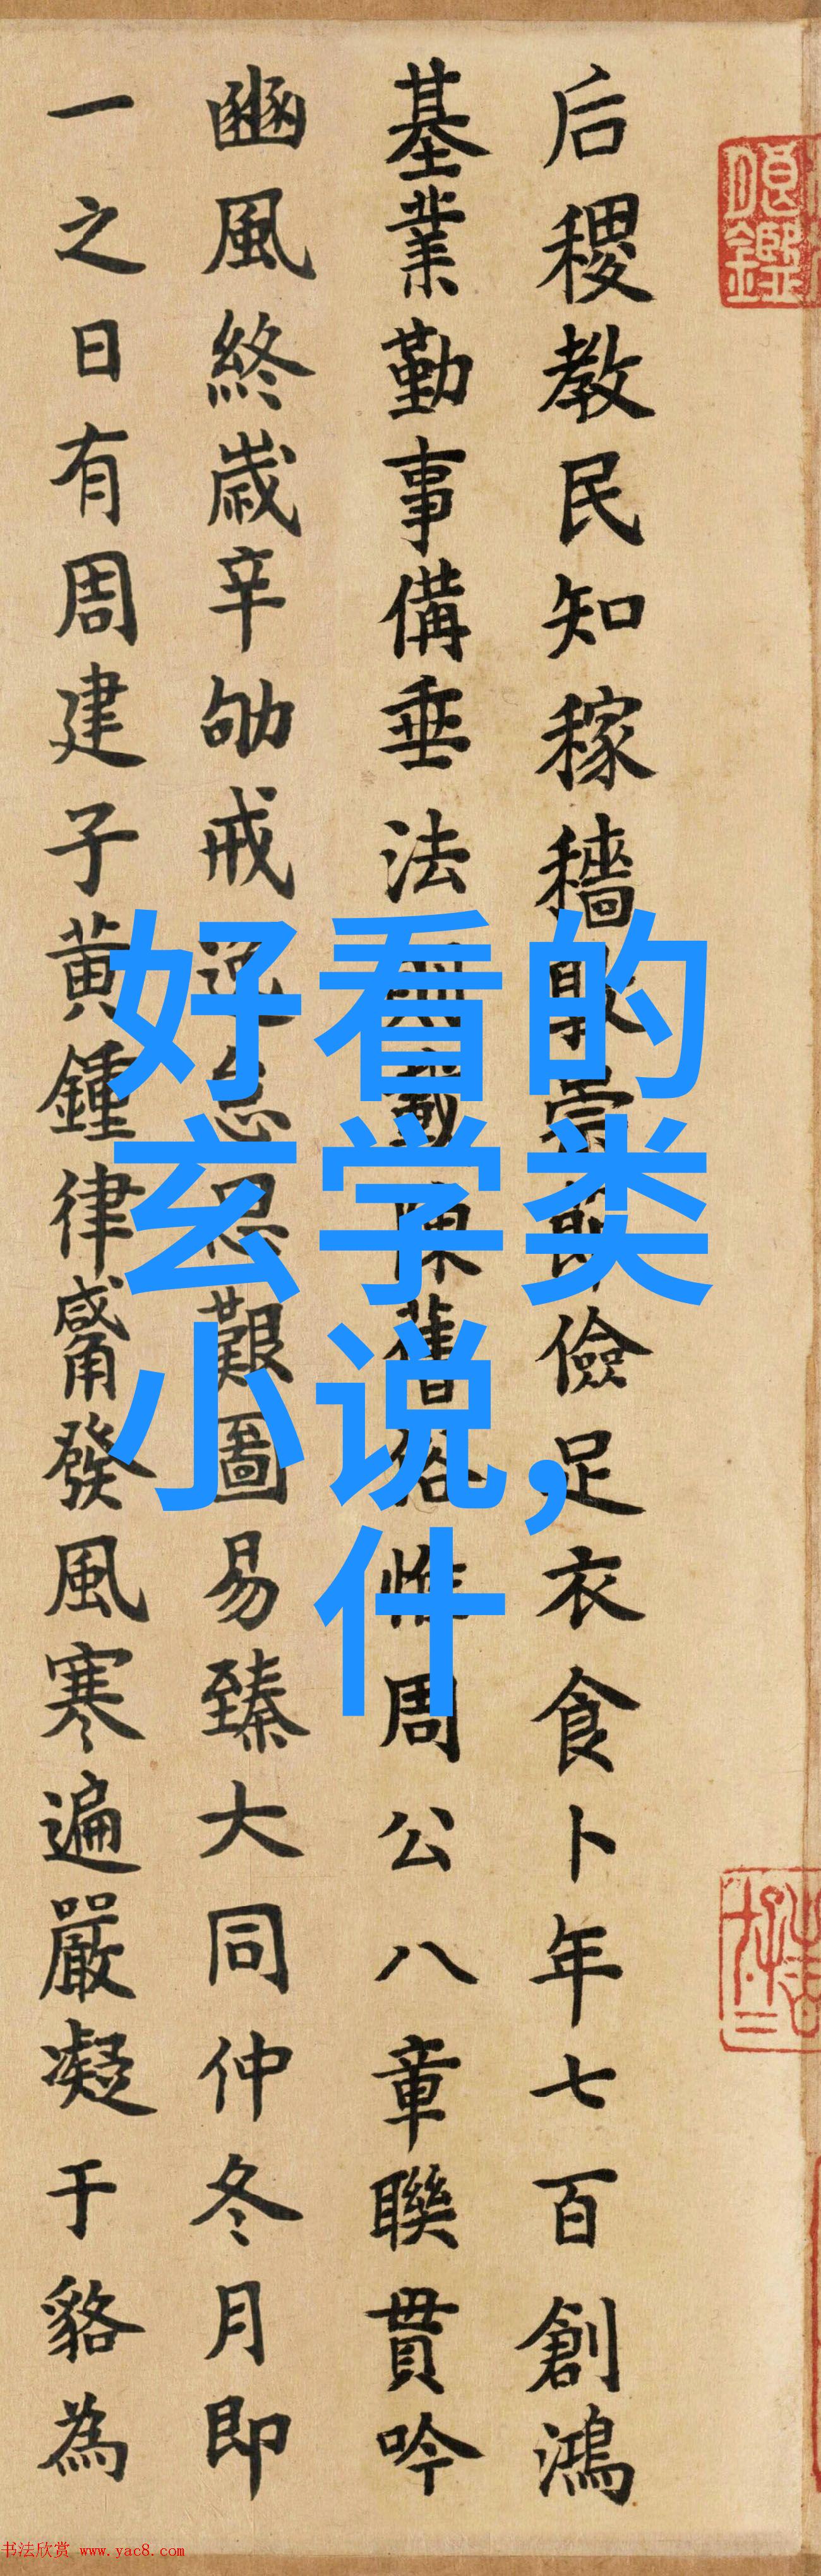 后稷教民知稼穡
儉足衣食卜年七百創鴻
基業勤事備垂法
陳舊俗惟周公八章聯貫吟
豳風終歲辛劬戒
艱圖易臻大同仲冬月即
一之日有周建子黃鍾律觱發風寒遍嚴凝于貉為
好看的
玄学类
小说,
件
书法欣赏 www.yac8.com